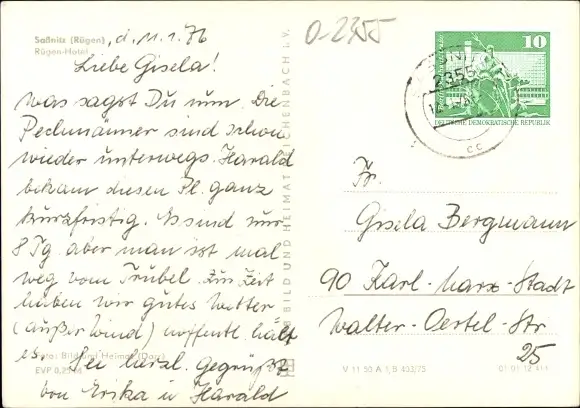 Saßnitz (Rügen), d. 11.1.76
Rügen-Hotel
Liebe Gisela!
Was sagst Du nun. Die
Pechmänner sind schon
wieder unterwegs. Harald
bekam diesen Pl. ganz
kurzfristig. Es sind nur
8 Tg. aber man ist mal
weg vom Trubel. Zur Zeit
haben wir gutes Wetter
(außer Wind) hoffentl. hält
es. Sei herzl. gegrüßt
von Erika u Harald
Foto: Bild und Heimat (Darr)
EVP 0,25 M
BILD UND HEIMAT REICHENBACH i. V.
0-2355
2355
cc
10
DEUTSCHE DEMOKRATISCHE REPUBLIK
Fr.
Gisela Bergmann
90 Karl-Marx-Stadt
Walter-Oertel-Str
25
V 11 50 A 1 B 403/75
01 01 12 411